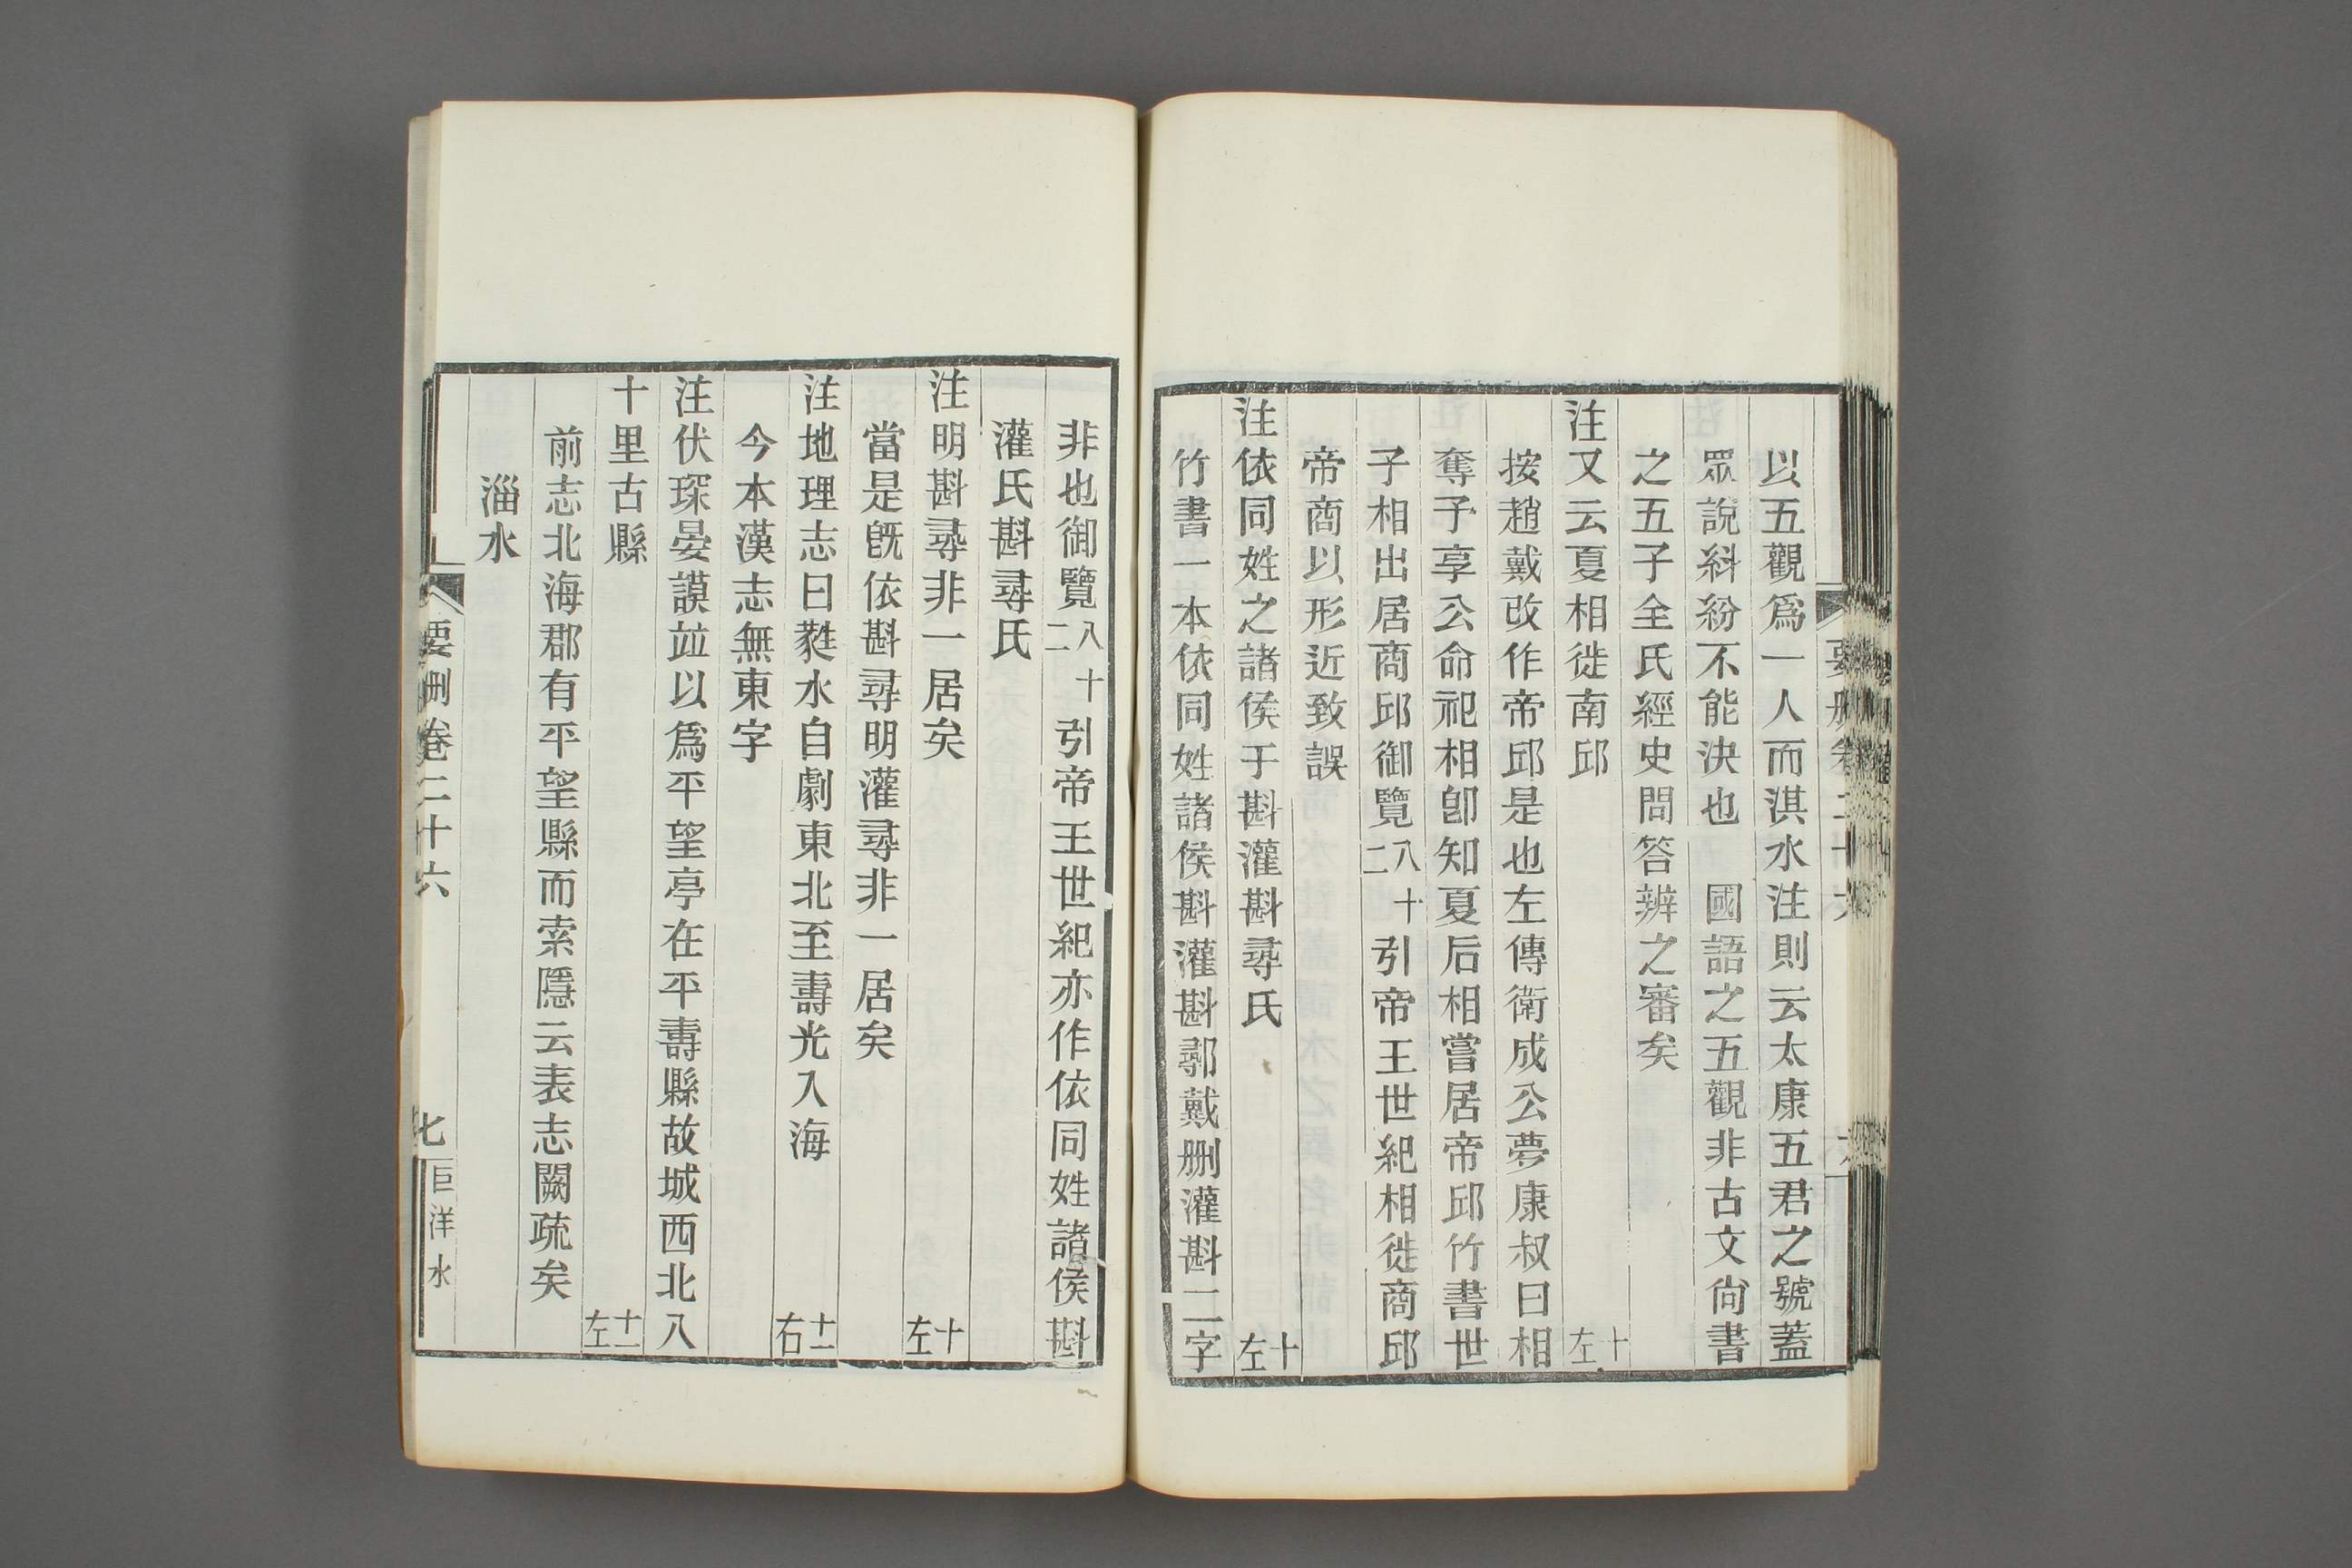 以五觀爲一人而淇水注則云太康五君之號蓋
眾說糾紛不能決也　國語之五觀非古文尙書
之五子全氏經史問答辨之審矣
注又云夏相徙南邱　十左
按趙戴改作帝邱是也左傳衛成公夢康叔曰相
奪予享公命祀相卽知夏后相嘗居帝邱竹書世
子相出居商邱御覽八十二引帝王世紀相徙商邱
帝商以形近致誤
注依同姓之諸侯于斟灌斟尋氏　十左
竹書一本依同姓諸侯斟灌斟鄩戴刪灌斟二字
非也御覽八十二引帝王世紀亦作依同姓諸侯斟
灌氏斟尋氏
注明斟尋非一居矣　十左
當是旣依斟尋明灌尋非一居矣
注地理志曰蕤水自劇東北至壽光入海　十一右
今本漢志無東字
注伏琛晏謨竝以爲平望亭在平壽縣故城西北八
十里古縣　十一左
前志北海郡有平望縣而索隱云表志闕疏矣
淄水
要刪卷二十六　七　巨洋水